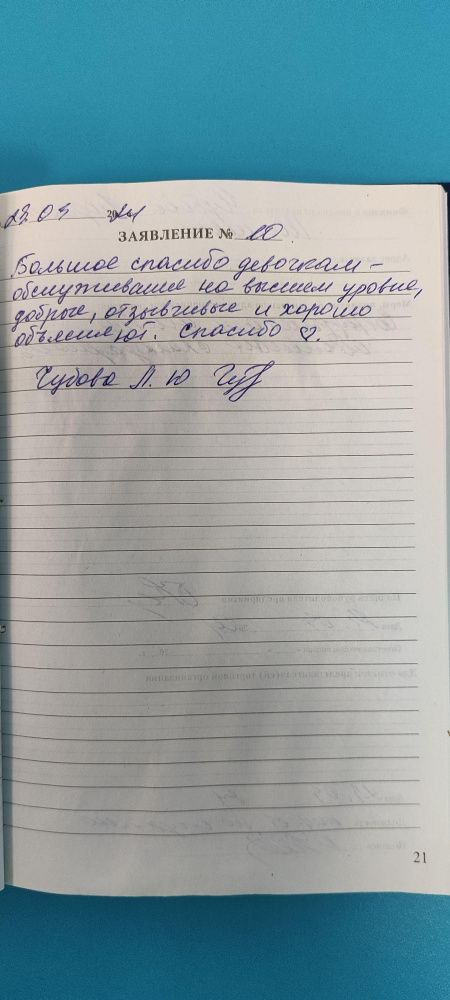 23.03 2024
ЗАЯВЛЕНИЕ № 10
Большое спасибо девочкам -
обслуживание на высшем уровне,
добрые, отзывчивые и хорошо
объясняют. Спасибо ♡.
Чубова Л. Ю
21